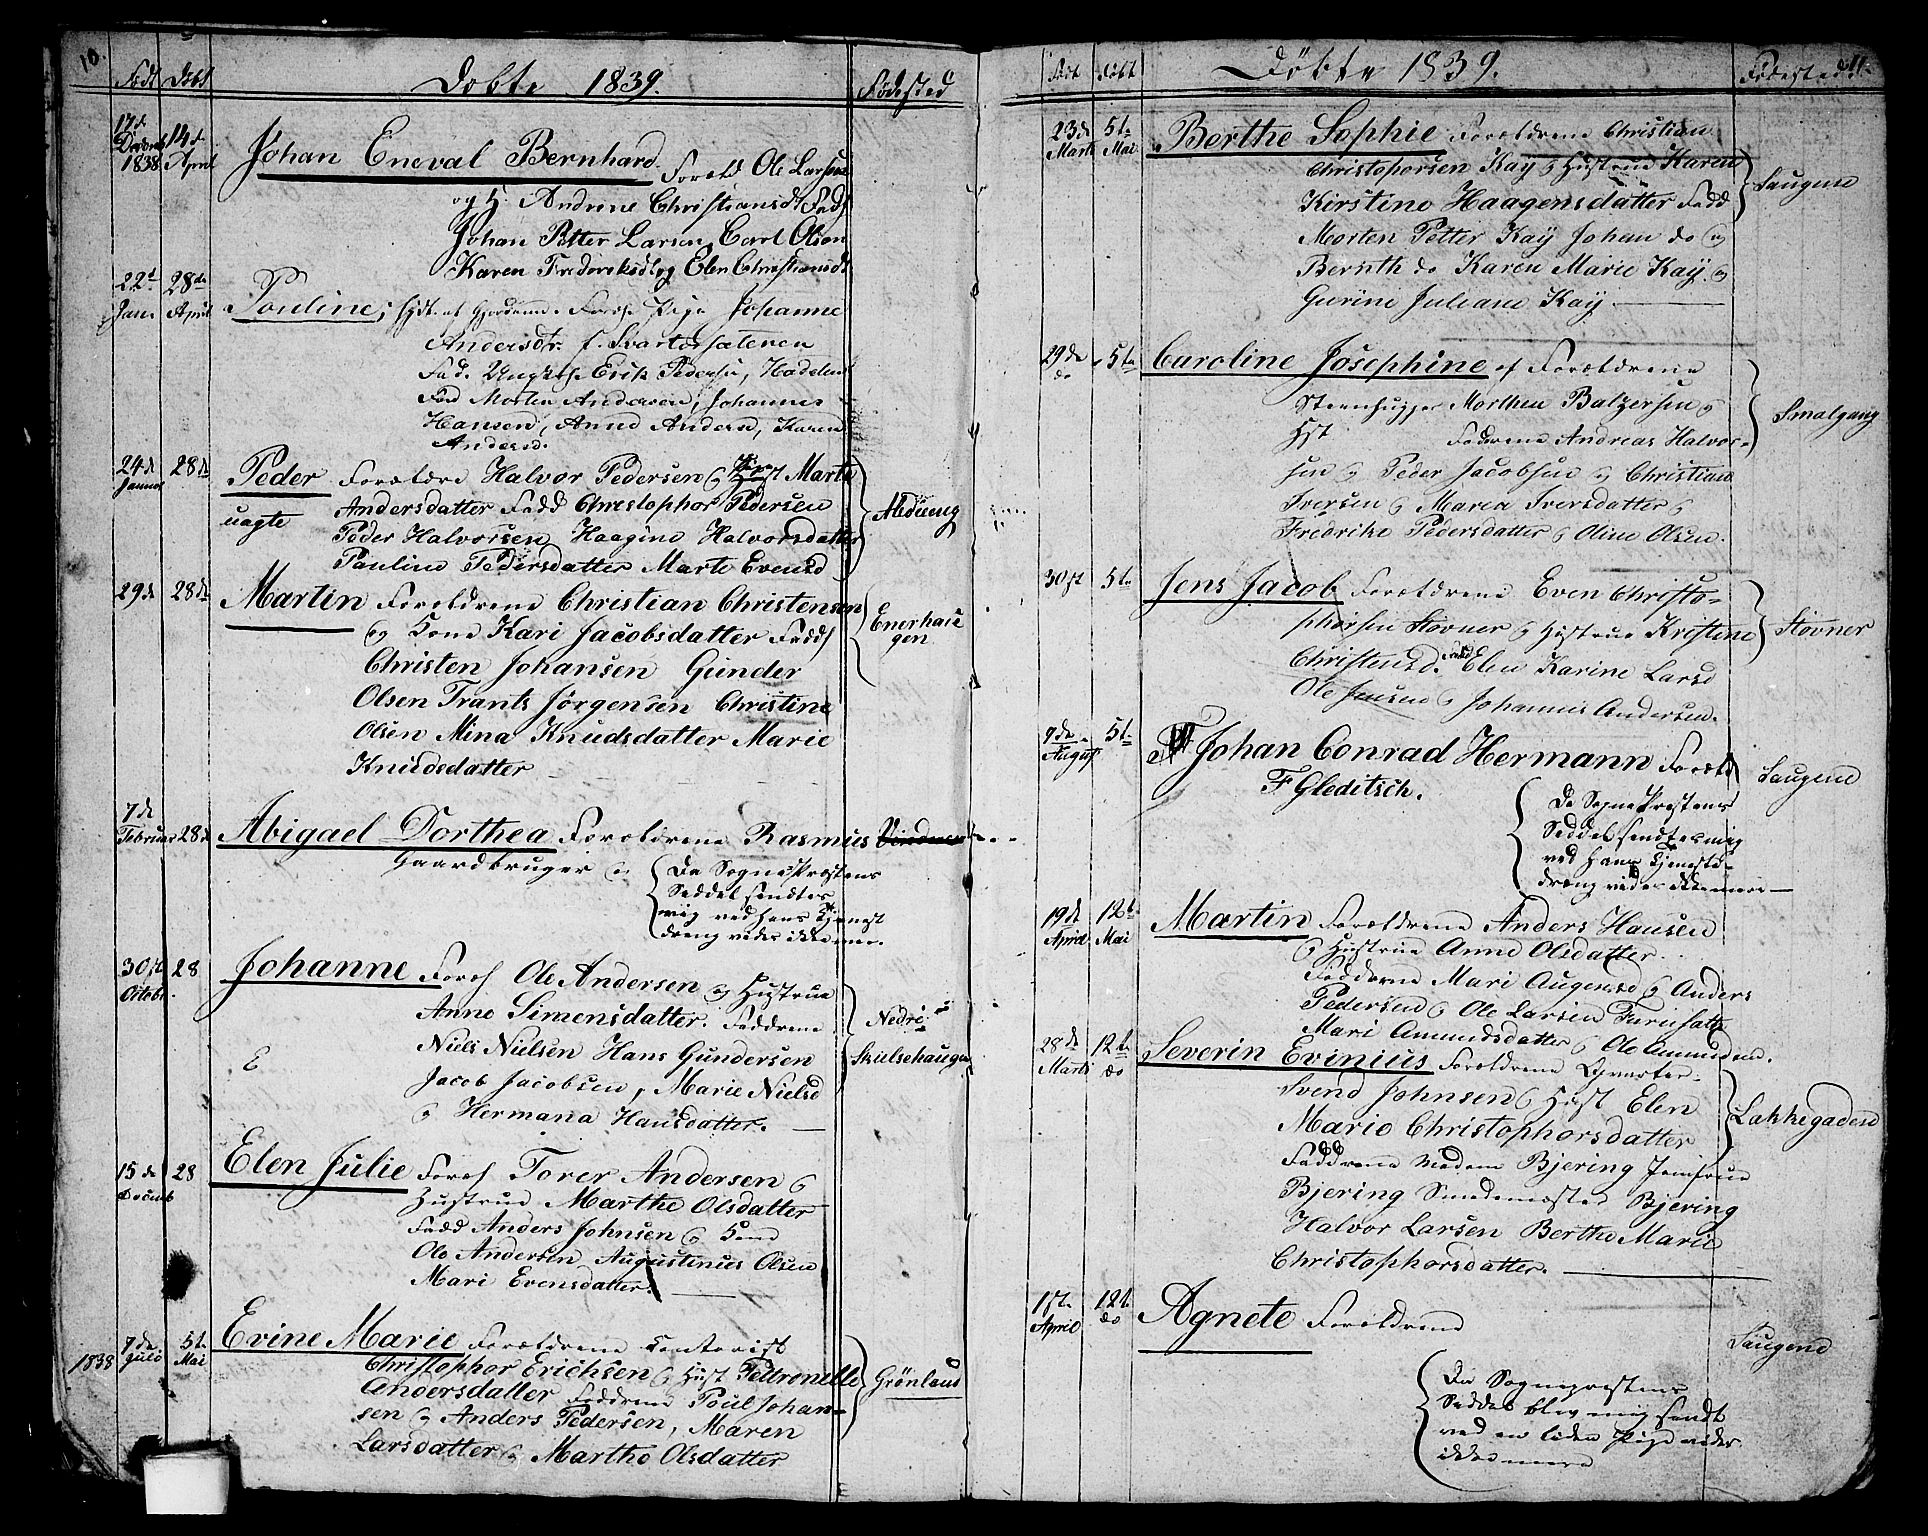 10.
Födt Döbt Döbte 1839. Födested
17d Decbr 1838 14d April Johan Eneval Bernhard. Foræld Ole Larsen
og H. Andrene Christiansdt Fads
Johan Petter Larsen, Carl Olsen
Karen Frederiksd og Elen Christiansdt
22d Jan. 28de April Pouline; Foræ Pige Johanne
Andersdr. f. Svartorsæteren
Fad. Erik Pedersen,
Morten Andersen, Johannes
Hansen, Anne Andersd, Karen
Andersd.
24d Januar 28d Peder Forældre Halvor Pedersen og Marte
uagte Andersdatter Fadd Christophor Pedersen
Peder Halvorsen Haagine Halvorsdatter
Pauline Pedersdatter Marte Evensd
29d 28de Martin Forældrene Christian Christensen Enerhau
og Kone Kari Jacobsdatter Fadds gen
Christen Johansen Gunder
Olsen Trants Jörgensen Christine
Olsen Mina Knudsdatter Marie
Knudsdatter
7de Februar 28d Abigael Dorthea Forældrene Rasmus
Gaardbruger og
Da Sogne Præstens
Seddel sendtes
mig ved hans Tjenest
dreng vides ikke mere.
30te Octobr. 28 Johanne Foræ Ole Andersen og Hustrue
Anne Simensdatter. Faddrene Nedre
Niels Nielsen Hans Gundersen Skulsehaugen
E
Jacob Jacobsen, Marie Nielsd
og Hermana Hansdatter.
15de Decemb 28 Elen Julie Foræ Torer Andersen og
Hustrue Marthe Olsdatter
Fadd Anders Johnsen og Kone
Ole Andersen Augustinus Olsen
Mari Evensdatter.
1838 7de Juli 5te Mai Evine Marie Forældrene Contorist
Christophor Erichsen og Hust Pettronelle Grönland
Andersdatter Faddrene Poul Johan-
sen og Anders Pedersen, Maren
Larsdatter og Marthe Olsdatter
Födt Döbt Döbte 1839. Födested 11.
23de Marts 5te Mai. Berthe Sophie Forældrene Christian
Christophorsen Kay og Hustrue Karen Saugene
Kirstine Haagensdatter Fadd
Morten Petter Kay Johan do og
Bernth do Karen Marie Kay og
Gurine Juliane Kay.
29de do 5te Caroline Josephine af Forældrene
Steenhugger Morthen Balzersen og Smalgang
Hst Faddrene Andreas Halvor-
sen og Peder Jacobsen og Christian
Iversen og Maren Iversdatter og
Fredrike Pedersdatter og Oline Olsen.
30te 5te Jens Jacob Forældrene Even Christo-
phorsen Stovner og Hustrue Kristine Stovner
Christensd. Fadd Elen Karine Larsd
Ole Jensen og Johannis Andersen.
9de August 5te Johan Conrad Hermann Foræld Saugene
F Gleditsch.
Da Sogne Prestens
Seddel sendtes mig
ved Hans Tjeneste-
dreng vides ikke mere
19de April 12te Mai Martin Forældrene Anders Hansen
og Hustrue Anne Olsdatter.
Faddrene Mari Augensd og Anders
Pedersen og Ole Larsen
Mari Amundsdatter og Ole Amundsen.
28de Marts 12te do Severin Evinius Forældrene
Svend Johnsen og Hust Elen
Marie Christophorsdatter Lakkegaden
Faddrene Madam Bjering Jomfrue
Bjering Smedemester Bjering
Halvor Larsen Berthe Marie
Christophorsdatter.
1ste April 12te do Agnete Forældrene Saugene
Da Sognepræstens
Seddel blev mig sendt
ved en liden Pige vides
ikke mere